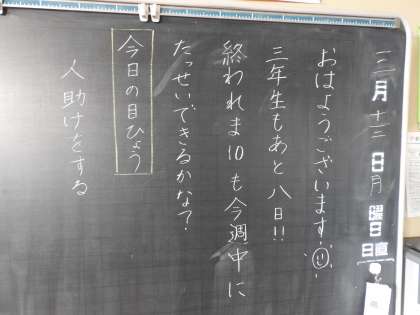 一二月十三日月曜日
日直
おはようございます
三年生もあと八日!!
終われま10も今週中に
たっせいできるかな?
今日の目ひょう
人助けをする